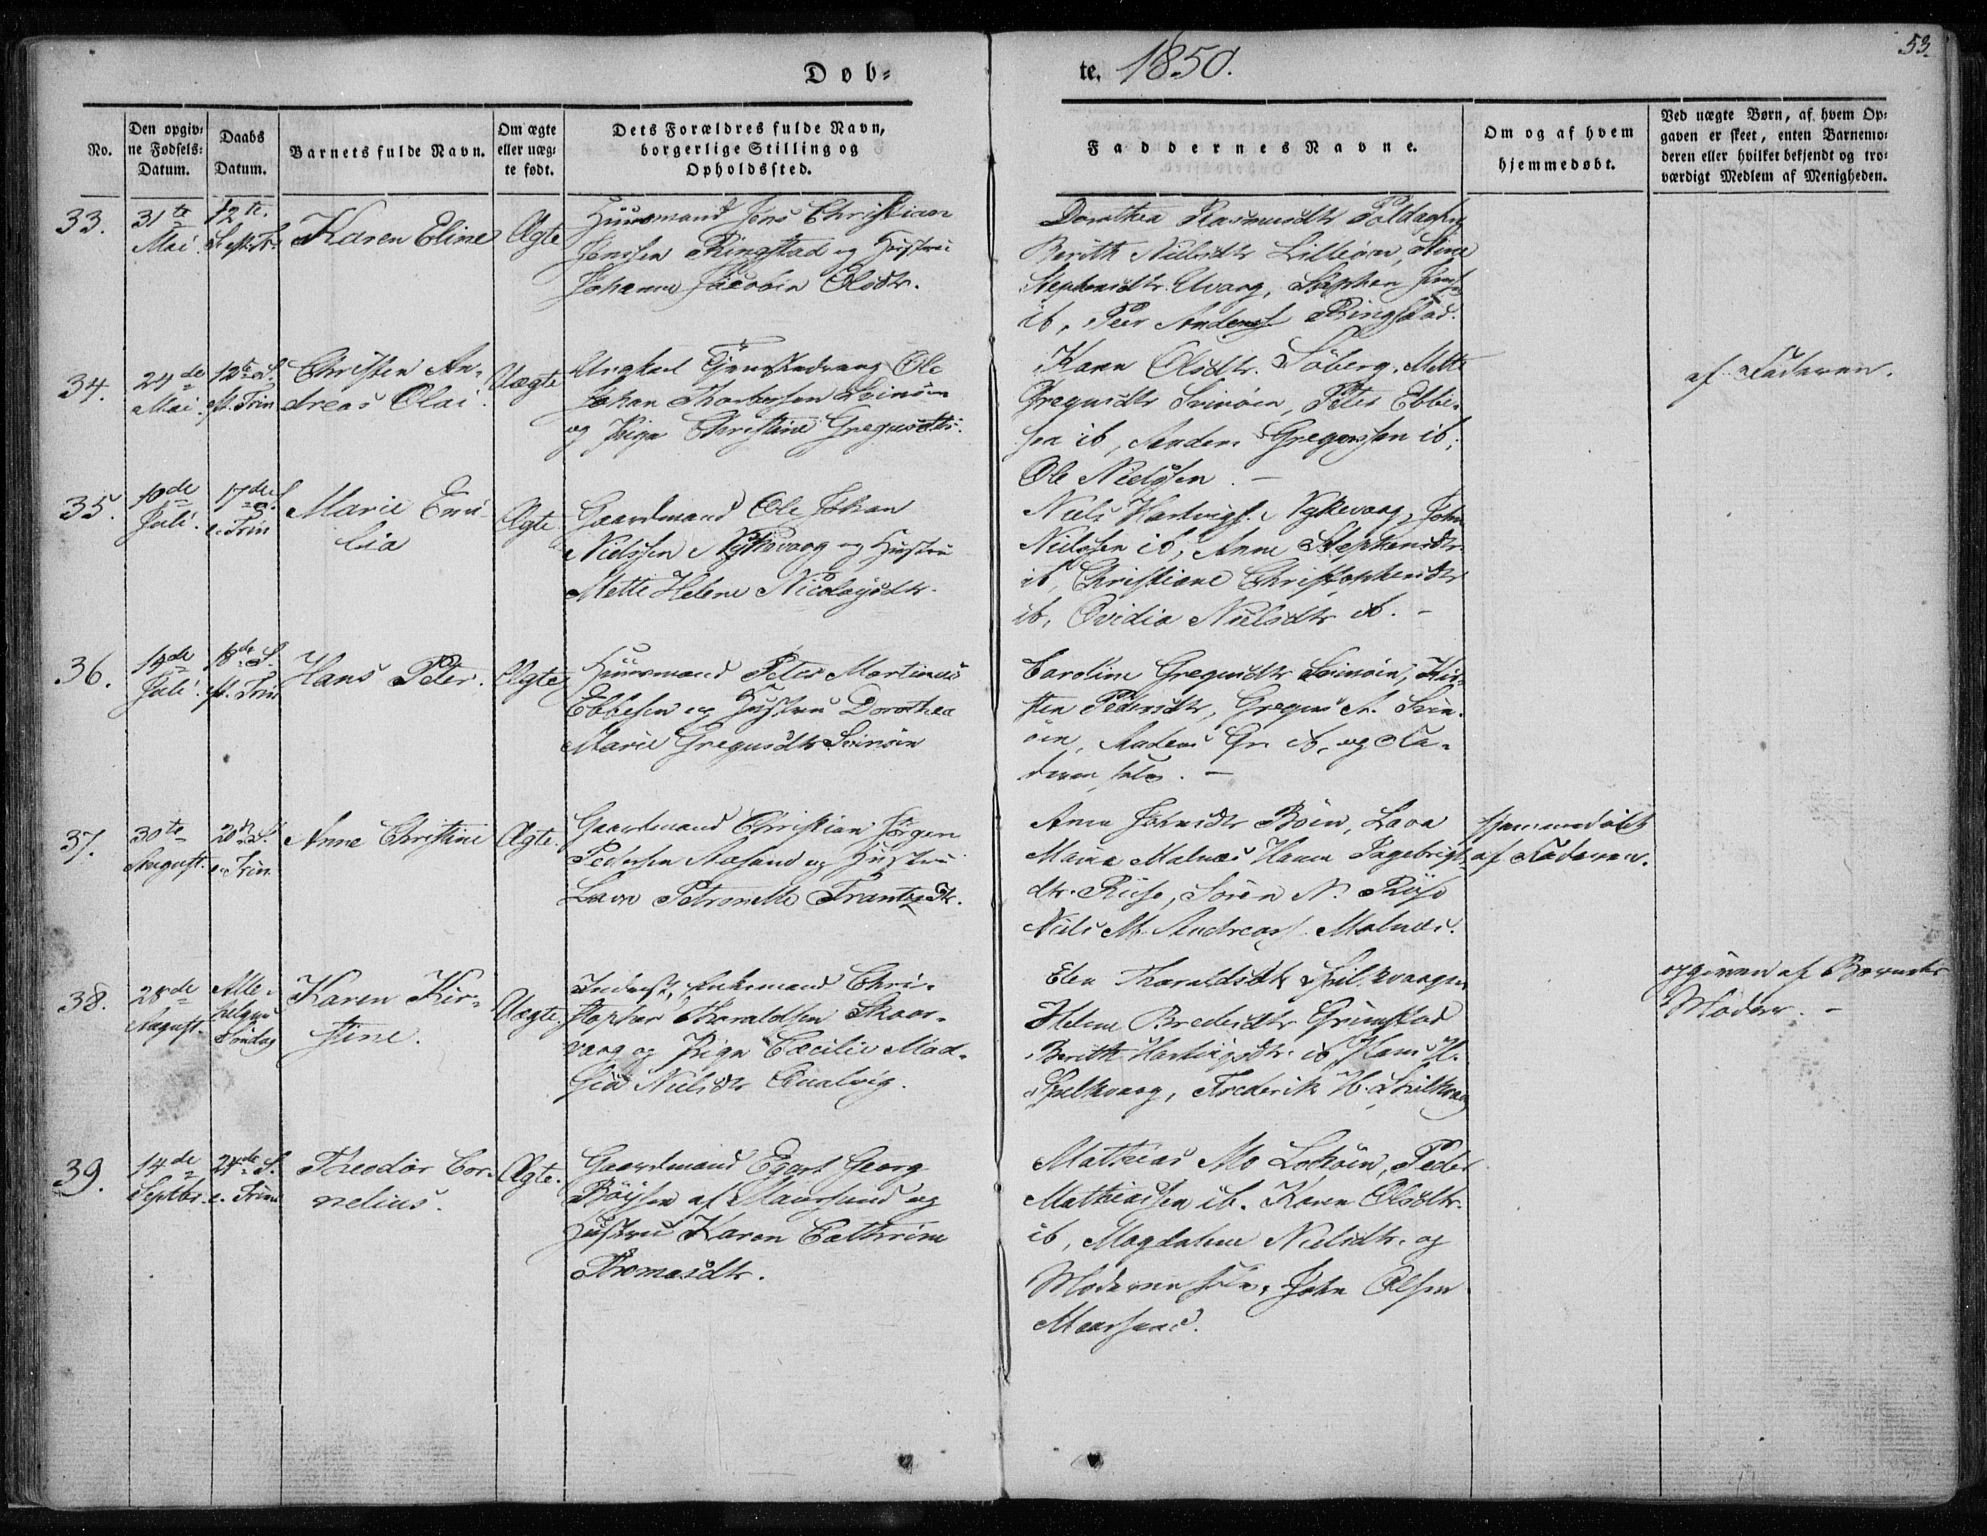 53.
Døb-
te. 1850.
No.
Den opgiv-
ne Fødsels-
Datum.
Daabs
Datum.
Barnets fulde Navn.
Om ægte
eller uæg-
te født.
Dets Forældres fulde Navn,
borgerlige Stilling og
Opholdssted.
Faddernes Navne.
Om og af hvem
hjemmedøbt.
Ved uægte Børn, af hvem Op-
gaven er skeet, enten Barnemo-
deren eller hvilket bekjendt og tro-
værdigt Medlem af Menigheden.
33.
31te
Mai
12te
Karen Eline
Ægte
Huusmand Jens Christian
Jenssen Ringstad og Hustru
Johanna Jacobia Olsdtr.
Dorothea Rasmusdtr
Berith Nielsdtr Lilleøen, Stine
Stephensdtr. Uvaag, Stephen
ib, Peer Anders. Ringstad.
34.
24de
Mai.
12te S.
p. Trin
Christen An-
dreas Olai.
Uægte
Ungkarl Ole
Johan Svinøen
og Pigen Christine Gregusdtr.
Karen Olsdtr. Søberg, Mette
Gregusdtr Svinøen, Peter Ebbe-
sen ib, Anders Gregussen ib,
Ole Nielssen. —
af Faderen.
35.
10de
Juli.
17de S.
e. Trin
Marie Emi-
lia
Ægte
Gaardmand Ole Johan
Nielssen Nykvaag og Hustru
Mette Helene Nicolaysdtr.
Niels Hartvigs. Nykevaag, John
Nielssen ib, Anne Stephensdtr.
ib, Christiane Christophersdtr
ib, Ovidia Nielsdtr ib. —
36.
19de
Juli.
18de S.
p. Trin
Hans Peter.
Ægte
Huusmand Peter Martinus
Ebbesen og Hustru Dorothea
Marie Gregusdtr Svinøen
Caroline Gregusdtr Svinøen, Kir-
sten Pedersdtr, Gregus A. Svin-
øen, Anders Gr. ib, og Fa-
deren selv. —
37.
30te
August.
20de S.
e. Trin
Anne Christine
Ægte.
Gaardmand Christian Jørgen
Pedersen Aasand og Hustru
Lava Petronelle Frantzdtr.
Anne Johnsdtr Bøen, Lava
Maria Malnæs Hanna Ingebrigt-
dtr. Risø, Søren N. Risø
Niels M. Andreas. Malnæs.
Hjemmedøbt
af Faderen.
38.
28de
August.
Alle-
helgens
Søndag
Karen Kir-
stine.
Uægte.
Inderst, Enkemand Chri-
stopher Tharaldsen Skaar-
vaag og Pigen Cæcilie Mad-
Nielsdtr Qualvig.
Elen Tharaldsdtr Spilkvaagen
Helene Bredesdtr Grimstad
Berith Hartvigsdtr. ib, Hans H.
Spilkvaag, Frederik H. Spilkvaag
opgiven af Barnets
Moder. —
39.
14de
Septbr.
24de S.
e. Trin
Theodor Cor-
nelius.
Ægte.
Gaardmand Egert Georg
Bøysen af Maarsund og
Hustru Karen Cathrine
Thomasdtr.
Mathias Mo Lokøen, Peder
Mathiassen ib. Karen Olsdtr.
ib, Magdalene Nielsdtr. og
Moderen selv, John Olsen
Maarsund.